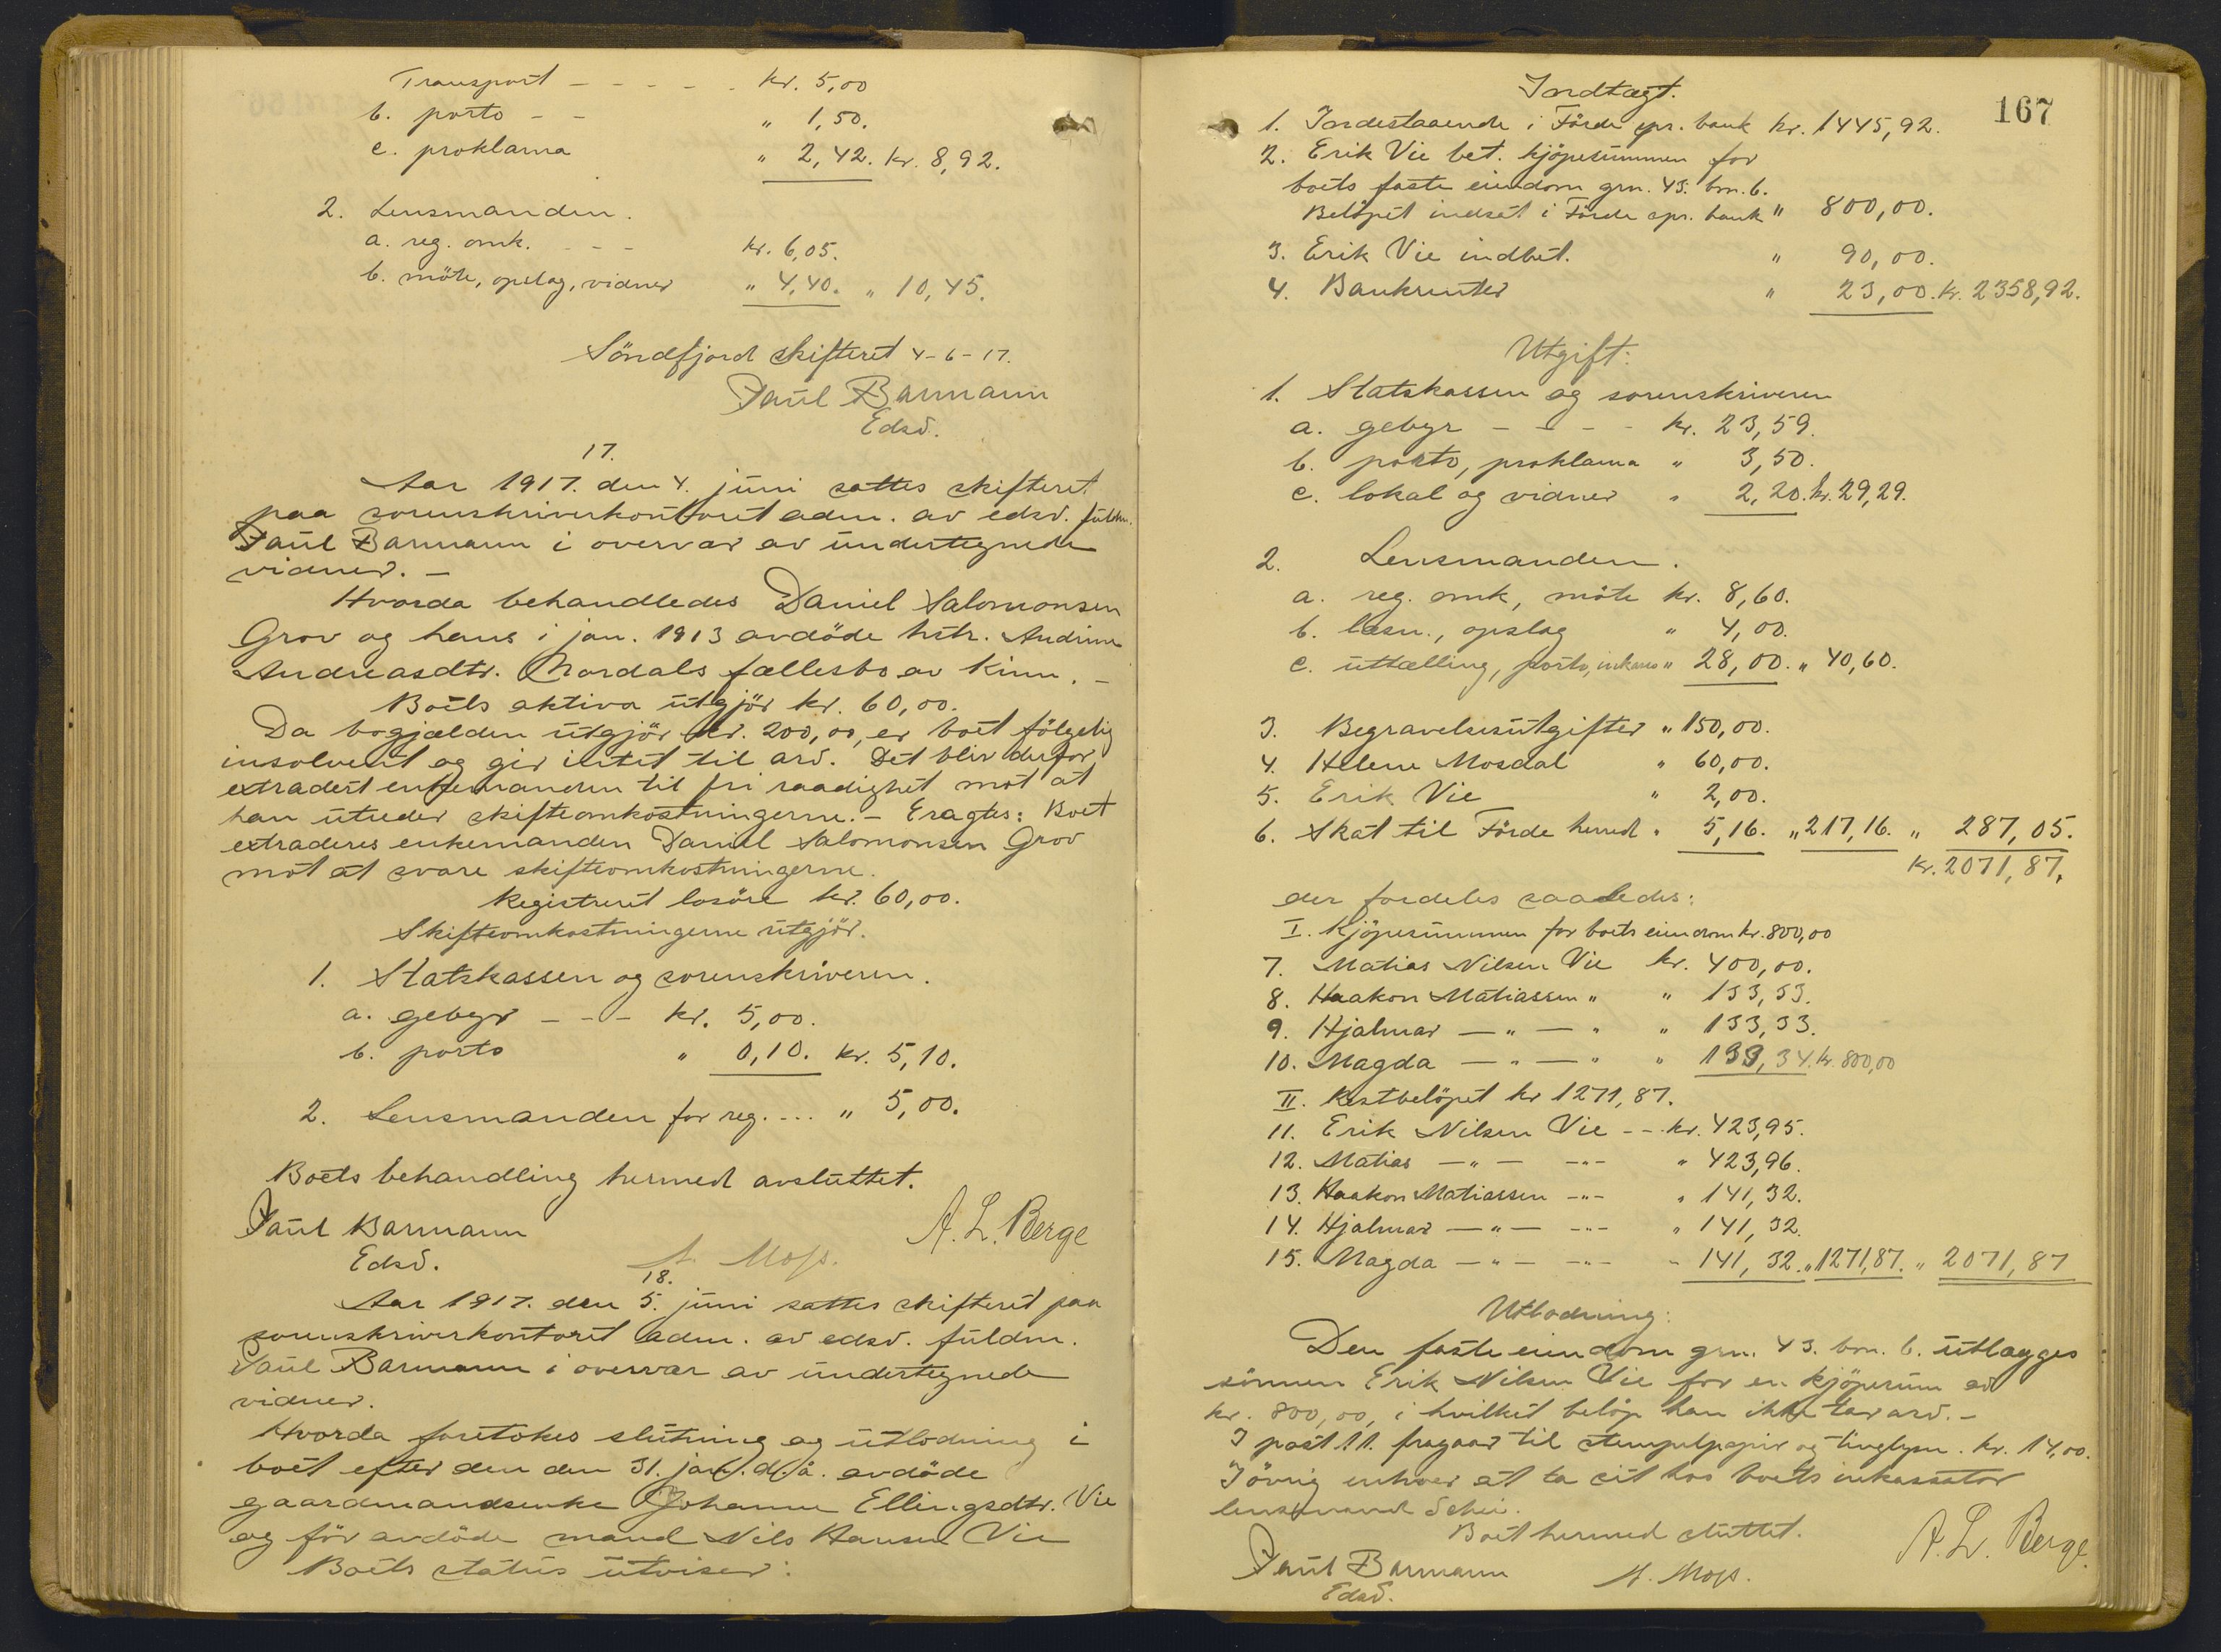 Transport - - - - - kr. 5,00
b. porto - - " 1,50.
c. proklama " 2,42. kr. 8,92.
2. Lensmanden.
a. reg. omk. - - - kr. 6,05.
b. möte, opslag, vidner " 4,40. " 10,45.
Söndfjord skifteret 4-6-17.
Paul Barmann
Edsv.
17.
Aar 1917. den 4. juni sattes skifteret
paa sorenskriverkontoret adm. av edsv. fuldm.
Paul Barmann i overvær av undertegnede
vidner. -
Hvorda behandledes Daniel Salomonsen
Grov og hans i jan. 1913 avdöde hstr. Andrine
Andreasdtr. Nordals fællesbo av Kinn. -
Boets aktiva utgjör kr. 60,00.
Da bogjælden utgjör kr. 200,00, er boet fölgelig
insolvent og gir intet til arv. Det blir derfor
extradert enkemanden til fri raadighet mot at
han utreder skifteomkostningerne. - Eragtes: Boet
extraderes enkemanden Daniel Salomonsen Grov
mot at svare skifteomkostningerne.
Registreret losöre kr. 60,00.
Skifteomkostningerne utgjör.
1. Statskassen og sorenskriveren.
a. gebyr - - - kr. 5,00.
b. porto " 0,10. kr. 5,10.
2. Lensmanden for reg. ... " 5,00.
Boets behandling hermed avsluttet.
Paul Barmann A. L. Berge
Edsv. A. Moss.
18.
Aar 1917. den 5. juni sattes skifteret paa
sorenskriverkontoret adm. av edsv. fuldm.
Paul Barmann i overvær av undertegnede
vidner.
Hvorda foretokes slutning og utlodning i
boet efter den den 31. jan. d. å. avdöde
gaardmandsenke Johanne Ellingsdtr. Vie
og för avdöde mand Nils Hansen Vie
Boets status utviser:
167
Indtægt.
1. Indestaaende i Förde spr. bank kr. 1445,92.
2. Erik Vie bet. kjöpesummen for
boets faste eiendom grn. 43. brn. 6.
Belöpet indsat i Förde spr. bank " 800,00.
3. Erik Vie indbet. " 90,00.
4. Bankrenter " 23,00. kr. 2358,92.
Utgift:
1. Statskassen og sorenskriveren
a. gebyr - - - - kr. 23,59.
b. porto, proklama " 3,50.
c. lokal og vidner " 2,20. kr. 29,29.
2. Lensmanden.
a. reg. omk, möte kr. 8,60.
b. opslag " 4,00.
c. uttælling, porto, inkasso " 28,00. " 40,60.
3. Begravelsesutgifter " 150,00.
4. Helene Mosdal " 60,00.
5. Erik Vie " 2,00.
6. Skat til Förde herred " 5,16. " 217,16. " 287,05.
kr. 2071,87.
der fordeles saaledes:
I. Kjöpesummen for boets eiendom kr. 800,00
7. Matias Nilsen Vie kr. 400,00.
8. Haakon Matiassen " " 133,33.
9. Hjalmar - " - " " 133,33.
10. Magda - " - " " 133,34. kr. 800,00
II. Restbelöpet kr 1271,87.
11. Erik Nilsen Vie - - kr. 423,95.
12. Matias - " - - " - " 423,96.
13. Haakon Matiassen - " - " 141,32.
14. Hjalmar - " - - " - " 141,32.
15. Magda - " - - " - " 141,32. " 1271,87. " 2071,87
Utlodning:
Den faste eiendom grn. 43. brn. 6. utlægges
sönnen Erik Nilsen Vie for en kjöpesum av
kr. 800,00, i hvilket belöp han ikke tar arv. -
I post 11. fragaar til stempelpapir og tinglysn. kr. 14,00.
I övrig enhver at ta sit hos boets inkassator
lensmand Schei.
Boet hermed sluttet.
Paul Barmann A. Moss. A. L. Berge.
Edsv.